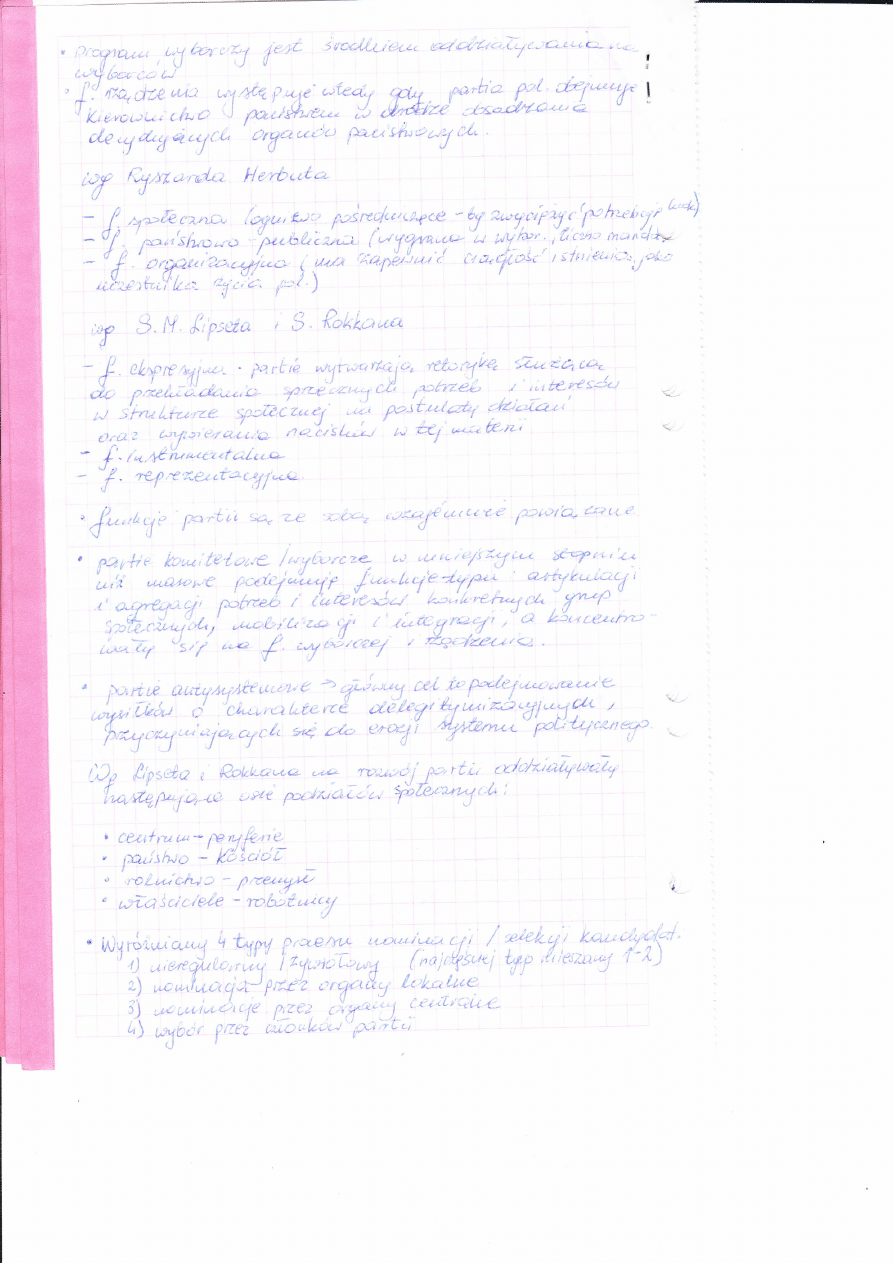 • Program wyborczy jest środkiem oddziaływania na
wyborców
• f. rządzenia występuje wtedy gdy partia pol. obejmuje
kierownictwo państwem w drodze obsadzania
decydujących organów państwowych.
wg Ryszarda Herbuta
– f. społeczna (ogniwo pośredniczące – by zwyciężyć potrzebuje ludzi)
– f. państwowo – publiczna (wygrana w wybor., liczba mandatów
– f. organizacyjna (ma zapewnić ciągłość istnienia, jako
uczestnika życia pol.)
wg S.M. Lipseta i S. Rokkana
– f. ekspresyjna • partie wytwarzają retorykę służącą
do przekładania sprzecznych potrzeb i interesów
w strukturze społecznej na postulaty działań
oraz wywierania nacisków w tej materii
– f. instrumentalna
– f. reprezentacyjna
• funkcje partii są ze sobą wzajemnie powiązane
• partie komitetowe / wyborcze w mniejszym stopniu
niż masowe podejmują funkcje typu: artykulacji
i agregacji potrzeb i interesów konkretnych grup
społecznych, mobilizacji i integracji, a koncentro-
wały się na f. wyborczej i rządzenia.
• partie antysystemowe → główny cel to podejmowanie
wysiłków o charakterze delegitymizacyjnych,
przyczyniających się do erozji systemu politycznego.
Wg Lipseta i Rokkana na rozwój partii oddziaływały
następujące osie podziałów społecznych:
• centrum – peryferie
• państwo – kościół
• rolnictwo – przemysł
• właściciele – robotnicy
• Wyróżniamy 4 typy procesu nominacji / selekcji kandydat.
1) nieregularny / żywiołowy (najczęściej typ mieszany 1-2)
2) nominacja przez organy lokalne
3) nominacje przez organy centralne
4) wybór przez członków partii